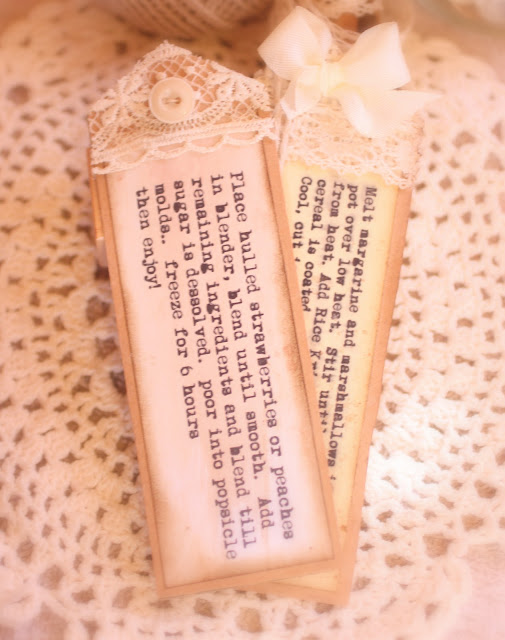 Place hulled strawberries or peaches
in blender, blend until smooth. Add
remaining ingredients and blend till
sugar is dessolved. poor into popsicle
molds.. freeze for 6 hours
then enjoy!
Melt margarine and marshmallows
pot over low heat. Stir unti
from heat. Add Rice K
cereal is coated
Cool, cut